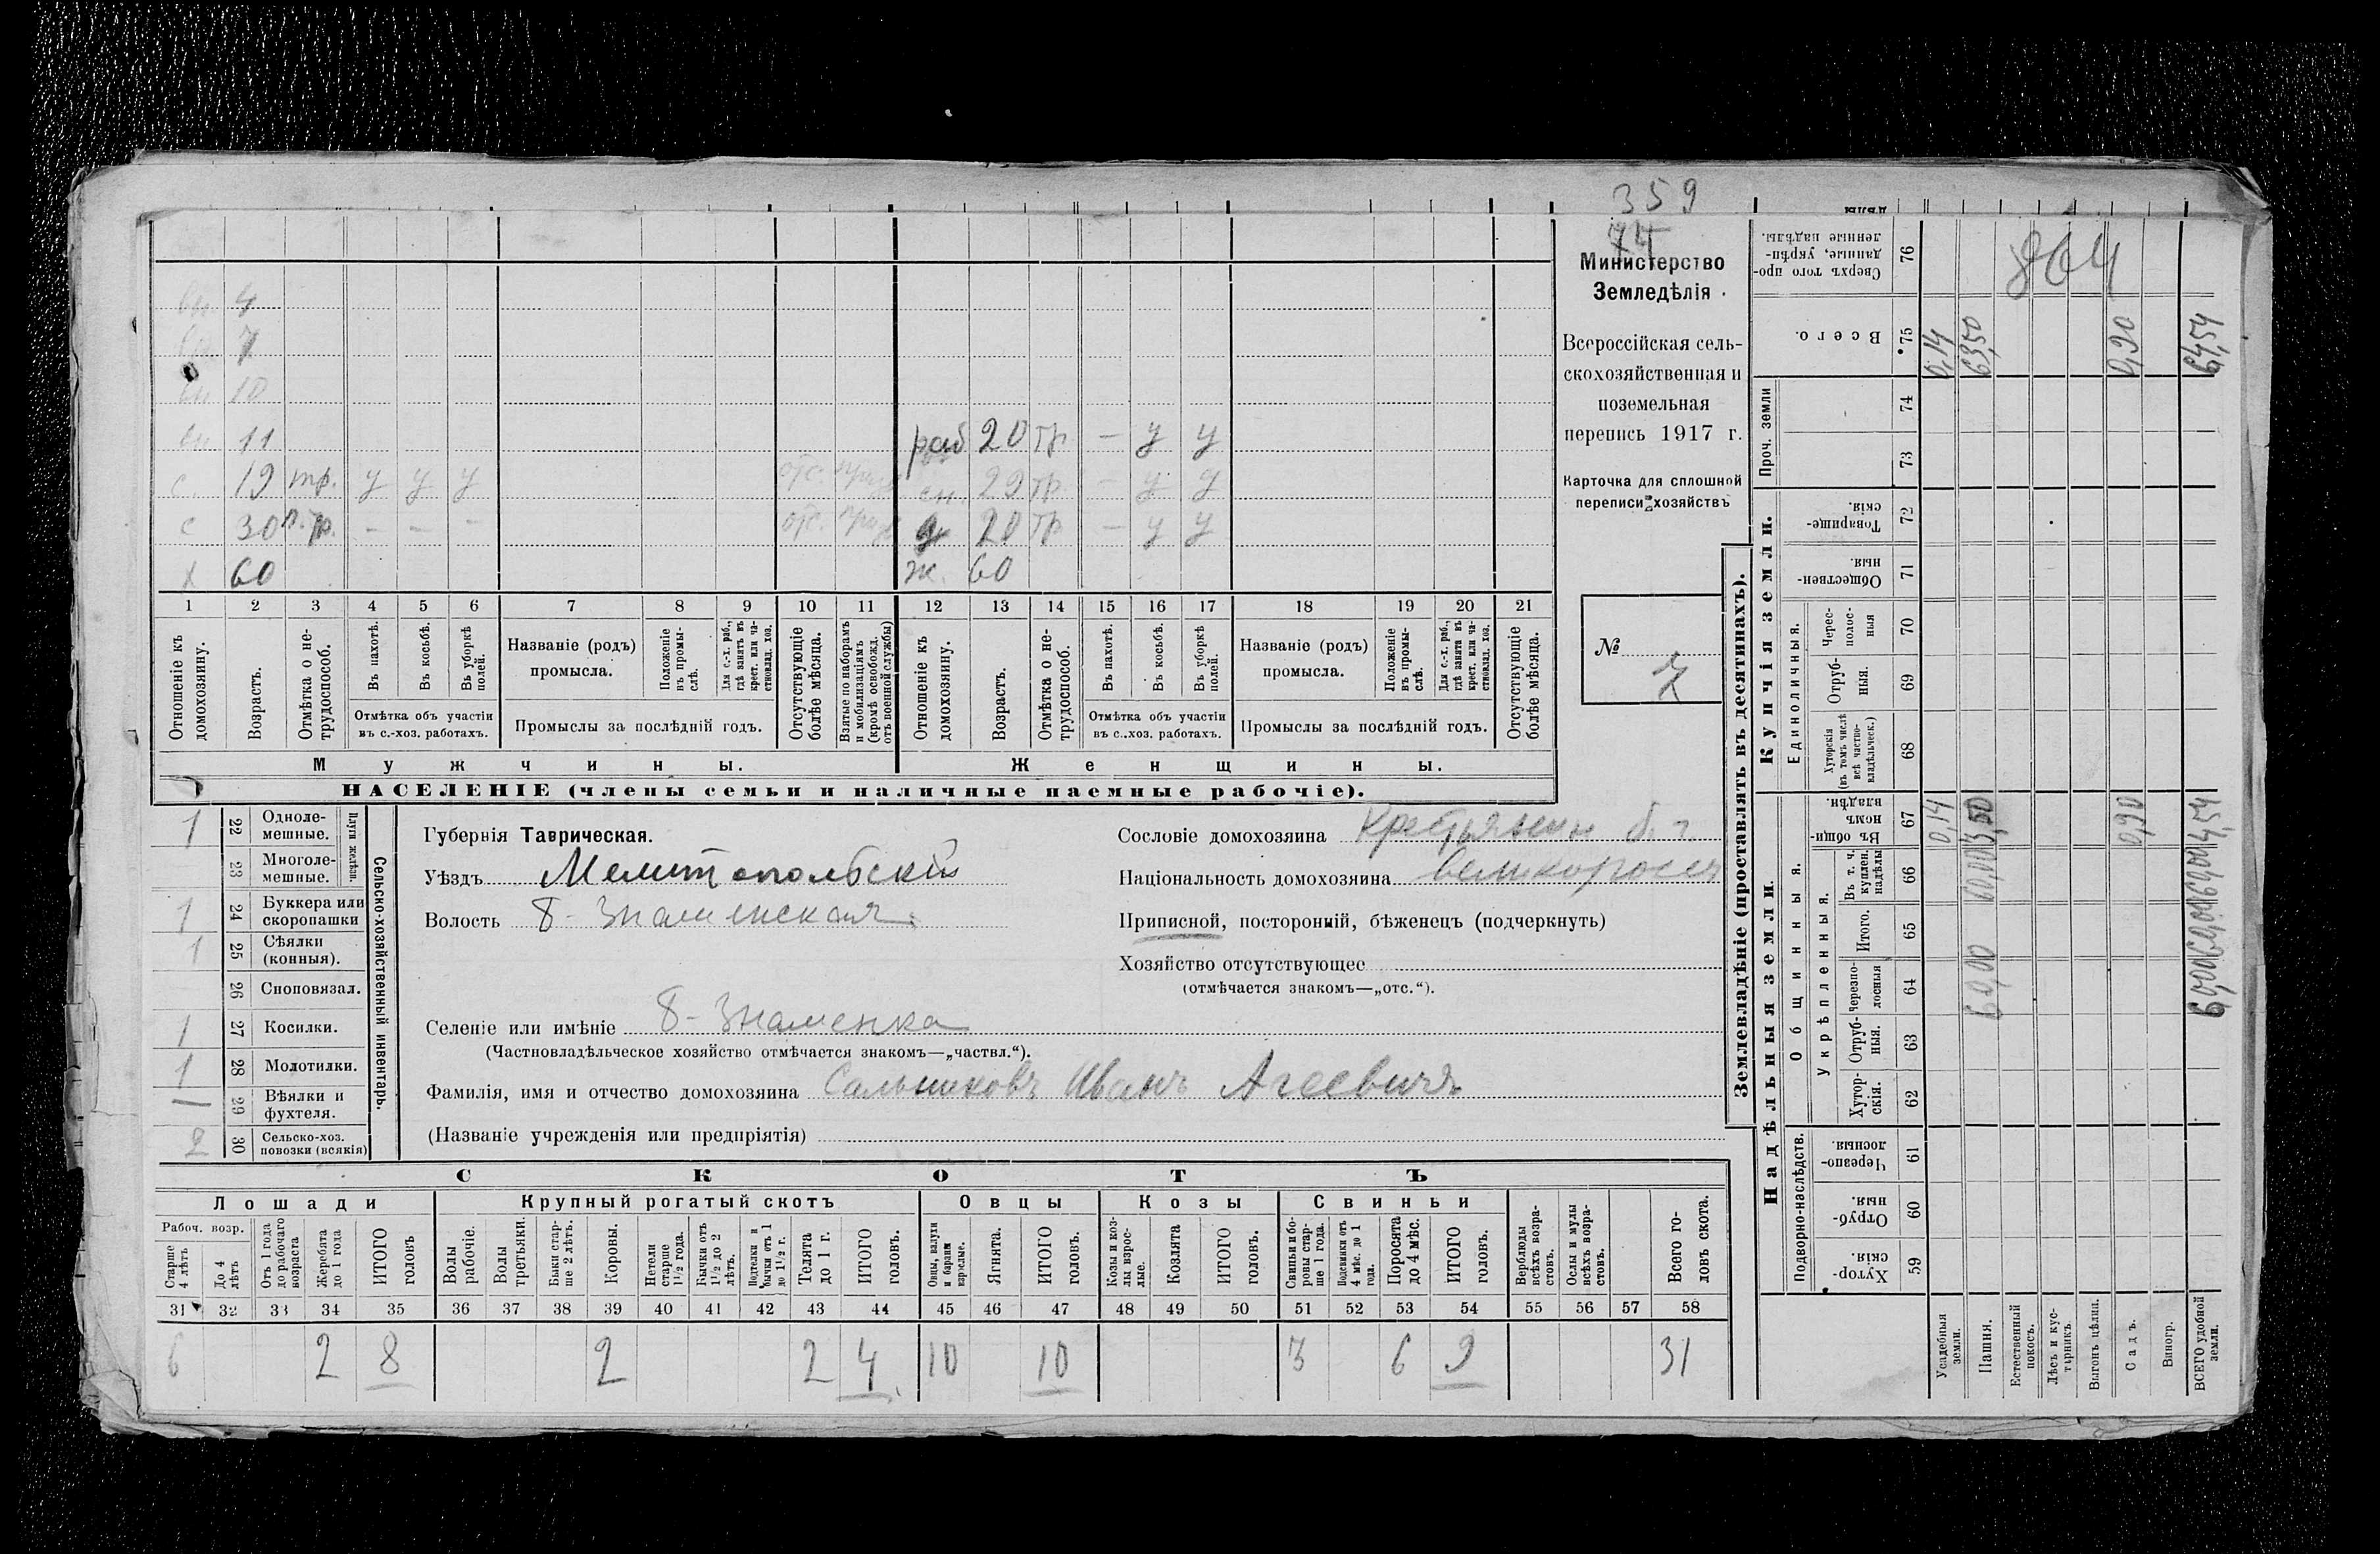 359
74
Министерство
Земледѣлія.
Всероссійская сель-
скохозяйственная и
поземельная
перепись 1917 г.
Карточка для сплошной
переписи хозяйствъ
№ 7
вн. 4
7
вн. 10
вн 11 раб 20 тр — у у
с. 19 тр. у у у отс. сн. 29 тр. — у у
с 30 п. тр. — — — отс. д 20 тр — у у
х 60 ж. 60
1 2 3 4 5 6 7 8 9 10 11 12 13 14 15 16 17 18 19 20 21
Отношеніе къ домохозяину.
Возрастъ.
Отмѣтка о не-трудоспособ.
Въ пахотѣ.
Въ косьбѣ.
Въ уборкѣ полей.
Отмѣтка объ участіи въ с.-хоз. работахъ.
Названіе (родъ) промысла.
Положеніе въ промы-слѣ.
Для с.-х. раб., гдѣ занятъ въ крест. или ча-стновлад. хоз.
Промыслы за послѣдній годъ.
Отсутствующіе болѣе мѣсяца.
Взятые по наборамъ и мобилизаціямъ (кромѣ освобожд. отъ военной службы)
Отношеніе къ домохозяину.
Возрастъ.
Отмѣтка о не-трудоспособ.
Въ пахотѣ.
Въ косьбѣ.
Въ уборкѣ полей.
Отмѣтка объ участіи въ с.-хоз. работахъ.
Названіе (родъ) промысла.
Положеніе въ промы-слѣ.
Для с.-х. раб., гдѣ занята въ крест. или ча-стновлад. хоз.
Промыслы за послѣдній годъ.
Отсутствующіе болѣе мѣсяца.
Мужчины. Женщины.
НАСЕЛЕНІЕ (члены семьи и наличные наемные рабочіе).
1 22 Одноле-мешные.
23 Многоле-мешные.
Плуги желѣзн.
1 24 Буккера или скоропашки
1 25 Сѣялки (конныя).
26 Сноповязал.
1 27 Косилки.
1 28 Молотилки.
1 29 Вѣялки и фухтеля.
2 30 Сельско-хоз. повозки (всякія)
Сельско-хозяйственный инвентарь.
Губернія Таврическая.
Уѣздъ Мелитопольскій
Волость Б-Знаменская
Сословіе домохозяина Крестьянин б. г
Національность домохозяина великоросс
Приписной, посторонній, бѣженецъ (подчеркнуть)
Хозяйство отсутствующее
(отмѣчается знакомъ—„отс.“).
Селеніе или имѣніе Б-Знаменка
(Частновладѣльческое хозяйство отмѣчается знакомъ—„частвл.“).
Фамилія, имя и отчество домохозяина Сальниковъ Иванъ Агеевичъ
(Названіе учрежденія или предпріятія)
СКОТЪ
Лошади Крупный рогатый скотъ Овцы Козы Свиньи
Рабоч. возр.
Старше 4 лѣтъ
До 4 лѣтъ
Отъ 1 года до рабочаго возраста
Жеребята до 1 года
ИТОГО головъ
Волы рабочіе.
Волы третьяки.
Быки стар-ше 2 лѣтъ.
Коровы.
Нетели старше 1½ года.
Бычки отъ 1½ до 2 лѣтъ.
Подтелки и бычки отъ 1 до 1½ г.
Телята до 1 г.
ИТОГО головъ.
Овцы, валухи и бараны взрослые.
Ягнята.
ИТОГО головъ.
Козы и коз-лы взрос-лые.
Козлята
ИТОГО головъ.
Свиньи и бо-ровы стар-ше 1 года.
Подсвинки отъ 4 мѣс. до 1 года.
Поросята до 4 мѣс.
ИТОГО головъ.
Верблюды всѣхъ возра-стовъ.
Ослы и мулы всѣхъ возра-стовъ.
Всего го-ловъ скота.
31 32 33 34 35 36 37 38 39 40 41 42 43 44 45 46 47 48 49 50 51 52 53 54 55 56 57 58
6 2 8 2 2 4 10 10 3 6 9 31
Землевладѣніе (проставлять въ десятинахъ).
Надѣльныя земли. Купчія земли. Проч. земли
Подворно-наслѣдств.
Общинныя.
Укрѣпленныя.
Единоличныя.
Хутор-скія. 59
Отруб-ныя. 60
Черезпо-лосныя 61
Хутор-скія. 62
Отруб-ныя. 63
Черезпо-лосныя 64
Итого. 65
Въ т. ч. куплен. надѣлы 66
Въ общин-номъ владѣн. 67
Хуторскія (въ томъ числѣ всѣ частно-владѣльческ.) 68
Отруб-ныя. 69
Черес-полос-ныя 70
Обществен-ныя. 71
Товарище-скія. 72
73
74
Всего. 75
Сверхъ того про-данные, укрѣп-ленные надѣлы. 76
Усадебныя земли. 0,14 0,14
Пашня. 60,00 60,00 3,50 63,50
Естественный покосъ.
Лѣсъ и кус-тарникъ.
Выгонъ цѣлин.
Садъ. 0,90 0,90
Виногр.
ВСЕГО удобной земли. 60,00 60,00 60,00 4,54 64,54
864